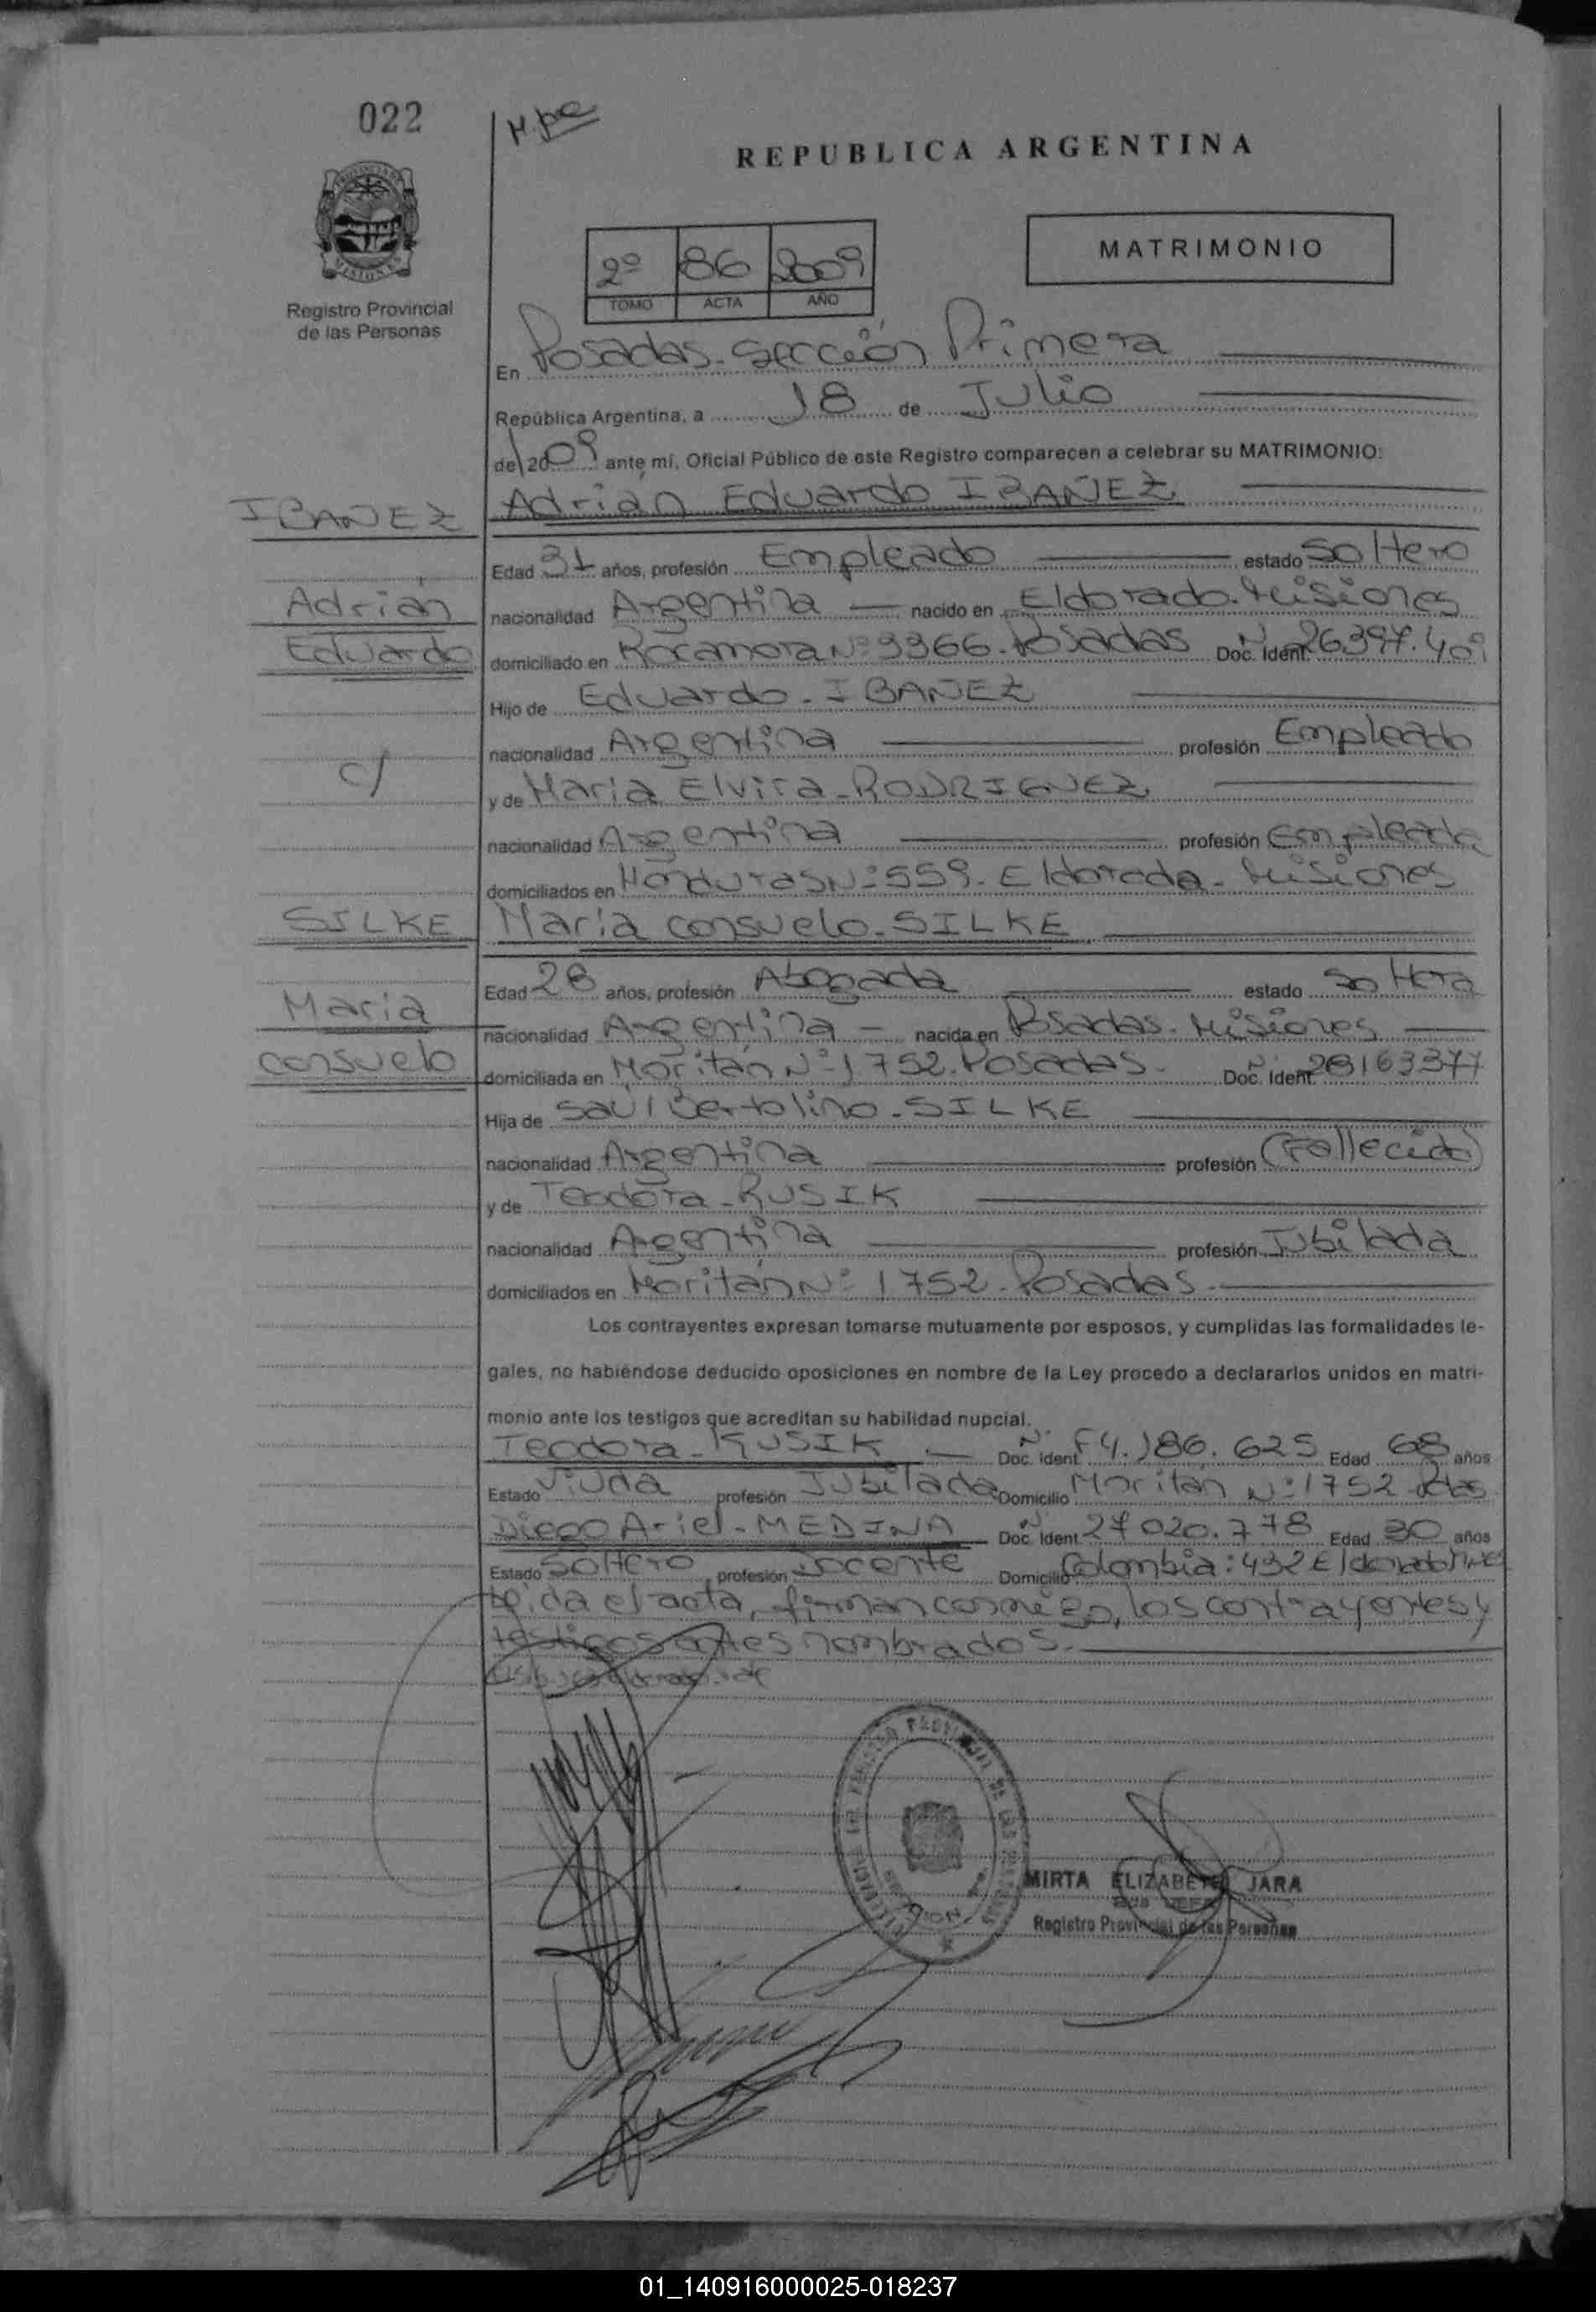 022
H. pe
REPUBLICA ARGENTINA
MATRIMONIO
2º 86 2009
TOMO ACTA AÑO
Registro Provincial
de las Personas
En Posadas. Sección Primera
República Argentina, a 18 de Julio
del 2009 ante mí, Oficial Público de este Registro comparecen a celebrar su MATRIMONIO:
IBAÑEZ
Adrián Eduardo IBAÑEZ
Edad 31 años, profesión Empleado estado Soltero
Adrián
nacionalidad Argentina nacido en Eldorado. Misiones
Eduardo
domiciliado en Rocamora Nº 3366. Posadas Doc. Ident. Nº 26397.40
Hijo de Eduardo. IBAÑEZ
nacionalidad Argentina profesión Empleado
c/
y de Maria Elvira. RODRIGUEZ
nacionalidad Argentina profesión Empleada
domiciliados en Honduras Nº 559. Eldorado. Misiones
SILKE
María Consuelo. SILKE
Edad 28 años, profesión Abogada estado Soltera
María
nacionalidad Argentina nacida en Posadas. Misiones
Consuelo
domiciliada en Moritán Nº 1752. Posadas. Doc. Ident. Nº 28163377
Hija de Saul Bertolino. SILKE
nacionalidad Argentina profesión (Fallecido)
y de Teodora. KUSIK
nacionalidad Argentina profesión Jubilada
domiciliados en Moritán Nº 1752. Posadas.
Los contrayentes expresan tomarse mutuamente por esposos, y cumplidas las formalidades le-
gales, no habiéndose deducido oposiciones en nombre de la Ley procedo a declararlos unidos en matri-
monio ante los testigos que acreditan su habilidad nupcial.
Teodora. KUSIK Doc. Ident. Nº F4.186.625 Edad 68 años
Estado Viuda profesión Jubilada Domicilio Moritán Nº 1752. Pdas
Diego Ariel. MEDINA Doc. Ident. Nº 27020.778 Edad 30 años
Estado Soltero profesión Docente Domicilio Colombia: 432 Eldorado
Leida el acta, firman conmigo, los contrayentes y
testigos antes nombrados.
MIRTA ELIZABETH JARA
Registro Provincial de las Personas
01_140916000025-018237